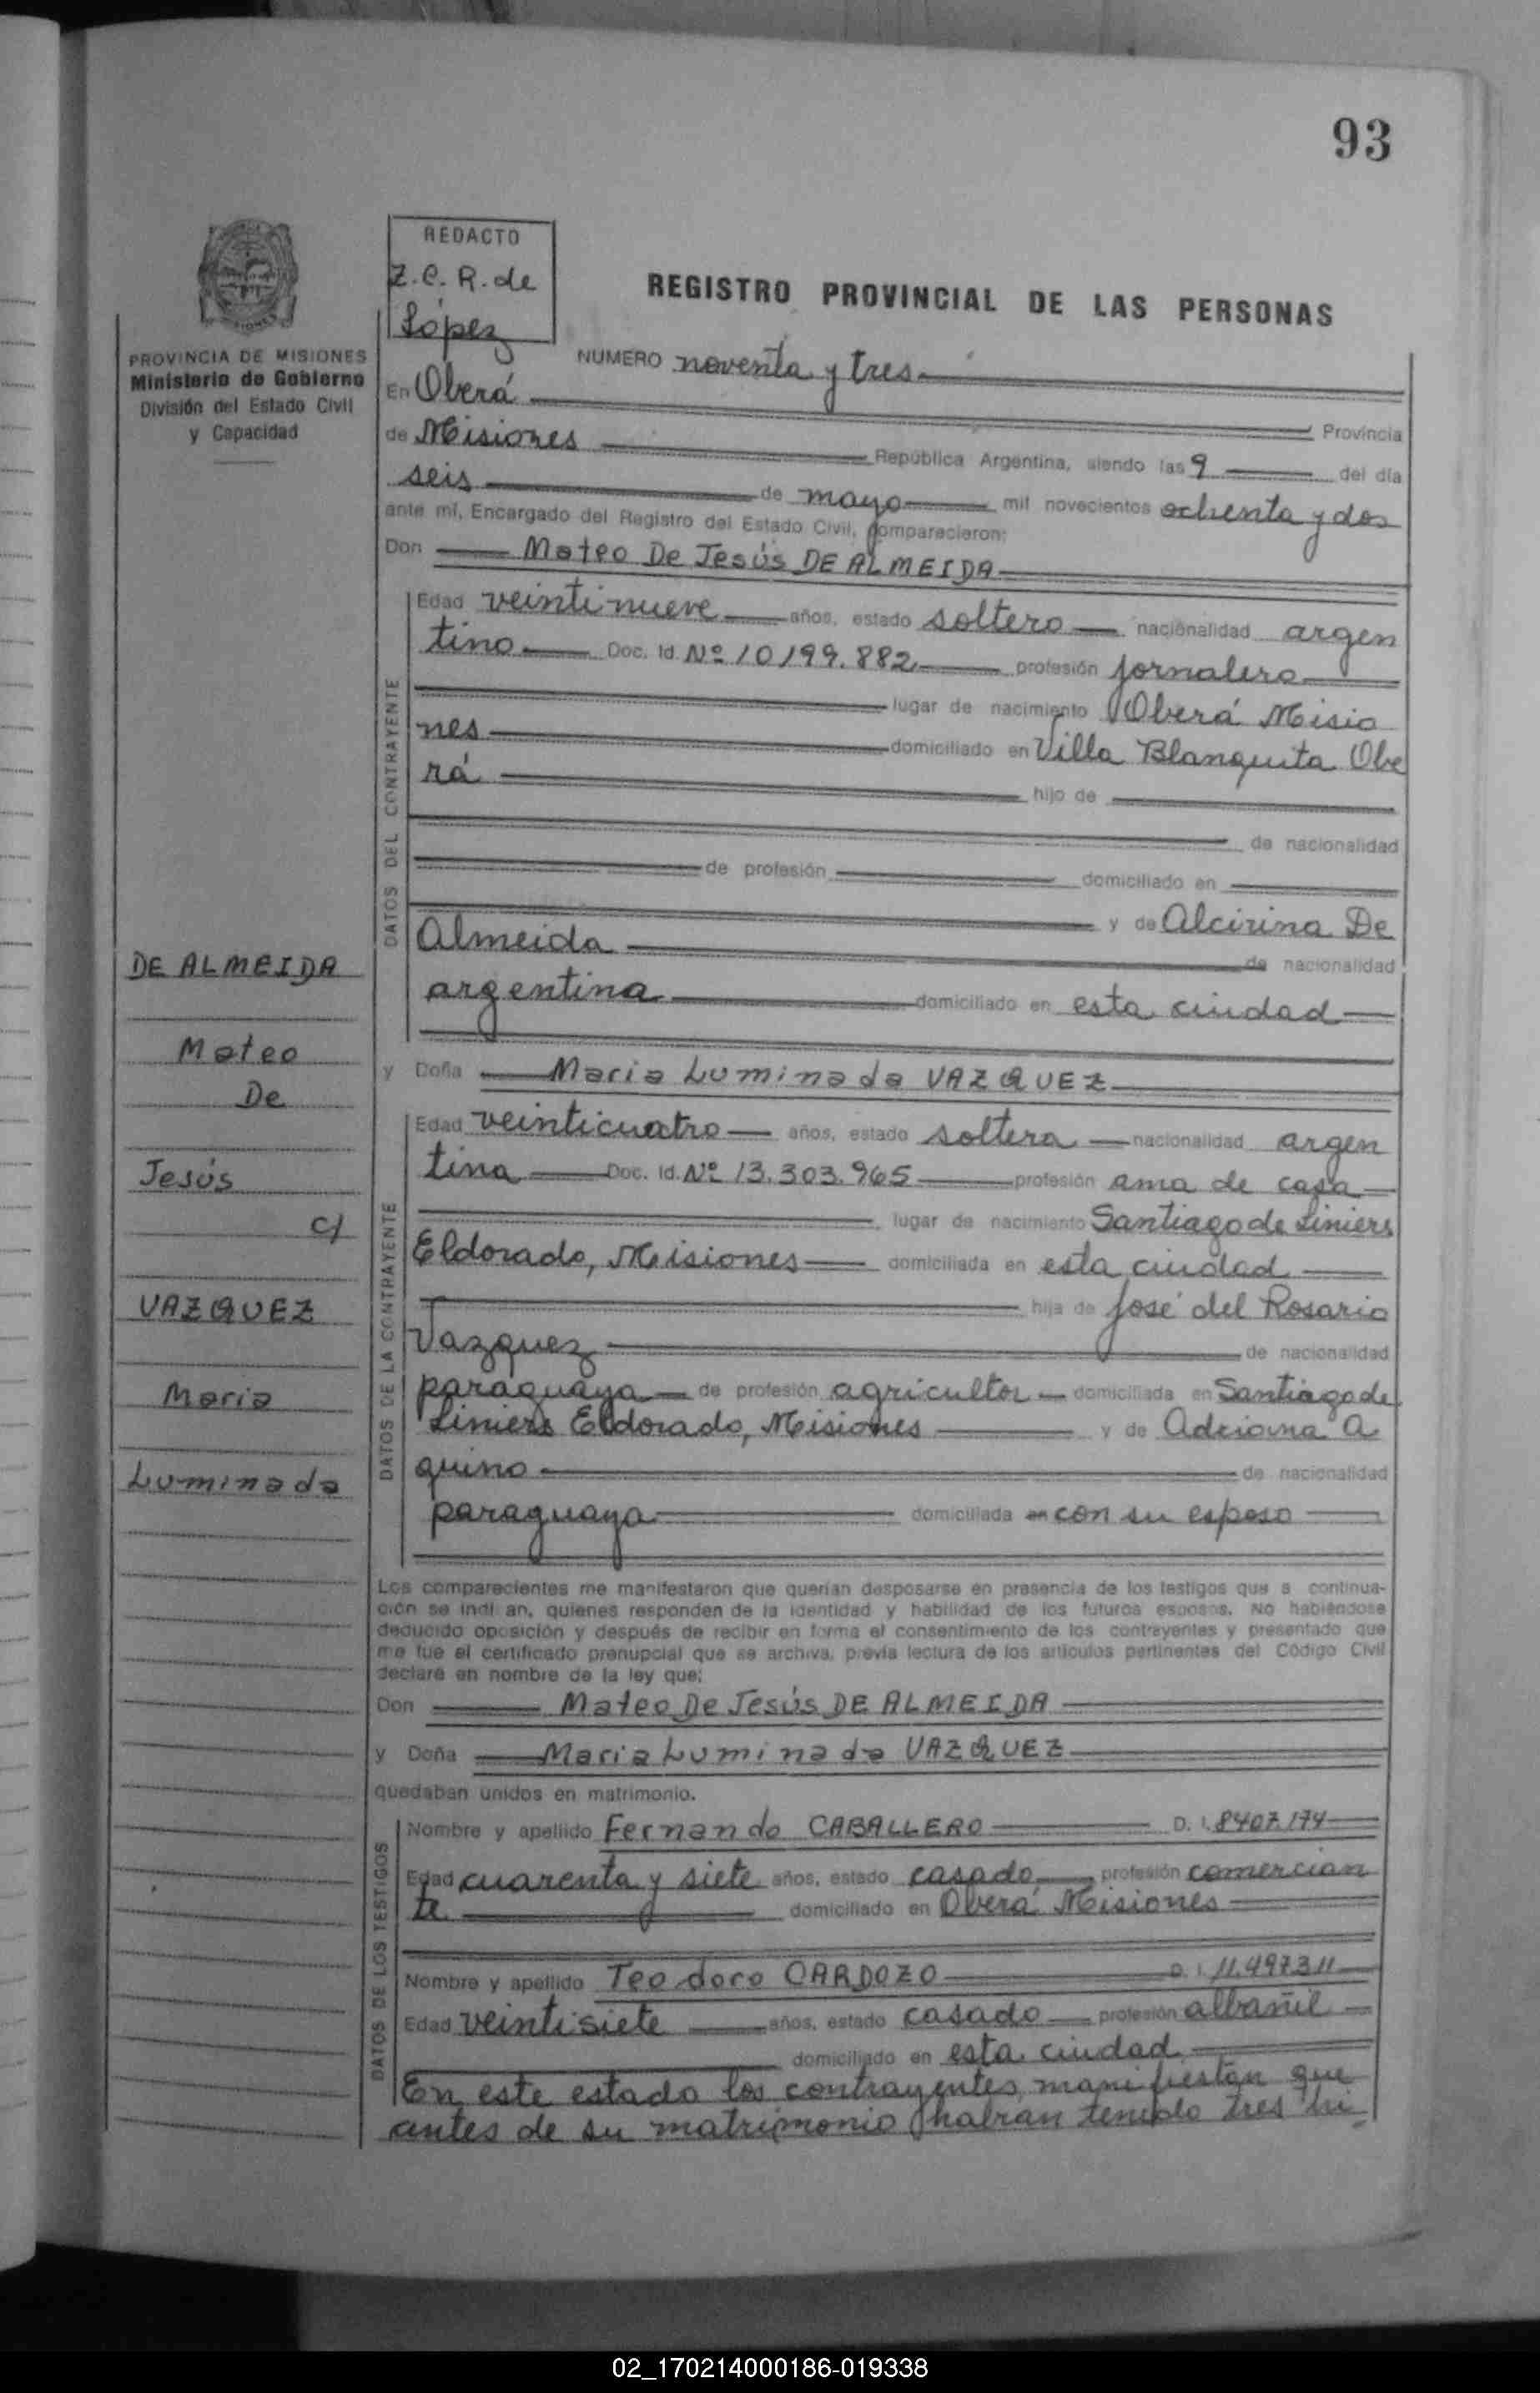 93
REDACTO
Z.C.R. de
López
REGISTRO PROVINCIAL DE LAS PERSONAS
PROVINCIA DE MISIONES
Ministerio de Gobierno
División del Estado Civil
y Capacidad
NUMERO noventa y tres
En Oberá Provincia
de Misiones República Argentina, siendo las 9 del día
seis de mayo mil novecientos ochenta y dos
ante mí, Encargado del Registro del Estado Civil, comparecieron:
Don Mateo De Jesús DE ALMEIDA
DATOS DEL CONTRAYENTE
Edad veintinueve años, estado soltero nacionalidad argen
tino Doc. Id. Nº 10199.882 profesión jornalero
lugar de nacimiento Oberá Misio
nes domiciliado en Villa Blanquita Obe
rá hijo de
de nacionalidad
de profesión domiciliado en
y de Alcirina De
Almeida de nacionalidad
argentina domiciliado en esta ciudad
DE ALMEIDA
Mateo
De
Jesús
c/
VAZQUEZ
Maria
Luminada
y Doña Maria Luminada VAZQUEZ
DATOS DE LA CONTRAYENTE
Edad veinticuatro años, estado soltera nacionalidad argen
tina Doc. Id. Nº 13.303.965 profesión ama de casa
lugar de nacimiento Santiago de Liniers
Eldorado, Misiones domiciliada en esta ciudad
hija de José del Rosario
Vazquez de nacionalidad
paraguaya de profesión agricultor domiciliada en Santiago de
Liniers Eldorado, Misiones y de Adriana A
quino de nacionalidad
paraguaya domiciliada en con su esposo
Los comparecientes me manifestaron que querían desposarse en presencia de los testigos que a continua-
ción se indi an, quienes responden de la identidad y habilidad de los futuros esposos. No habiéndose
deducido oposición y después de recibir en forma el consentimiento de los contrayentes y presentado que
me fue el certificado prenupcial que se archiva, previa lectura de los artículos pertinentes del Código Civil
declaré en nombre de la ley que:
Don Mateo De Jesús DE ALMEIDA
y Doña Maria Luminada VAZQUEZ
quedaban unidos en matrimonio.
DATOS DE LOS TESTIGOS
Nombre y apellido Fernando CABALLERO D. I. 8407.174
Edad cuarenta y siete años, estado casado profesión comercian
te domiciliado en Oberá Misiones
Nombre y apellido Teodoro CARDOZO D. I. 11.497.311
Edad veintisiete años, estado casado profesión albañil
domiciliado en esta ciudad
En este estado los contrayentes manifiestan que
antes de su matrimonio habían tenido tres hi
02_170214000186-019338